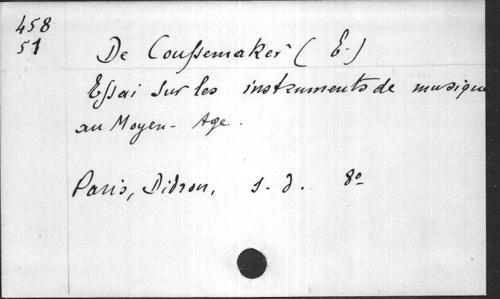 458
51
De Coussemaker (E.)
Essai sur les instruments de musique
au Moyen-Age.
Paris, Didron, s. d. 8o